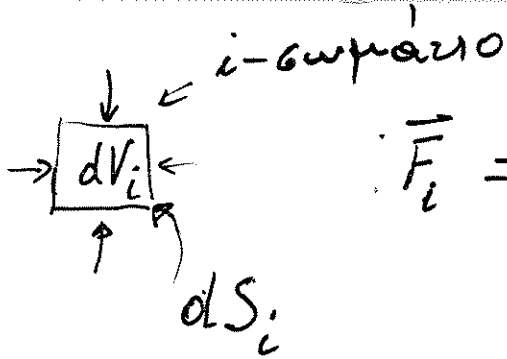 i-σωμάτιο
dV_i
\vec{F}_i =
dS_i